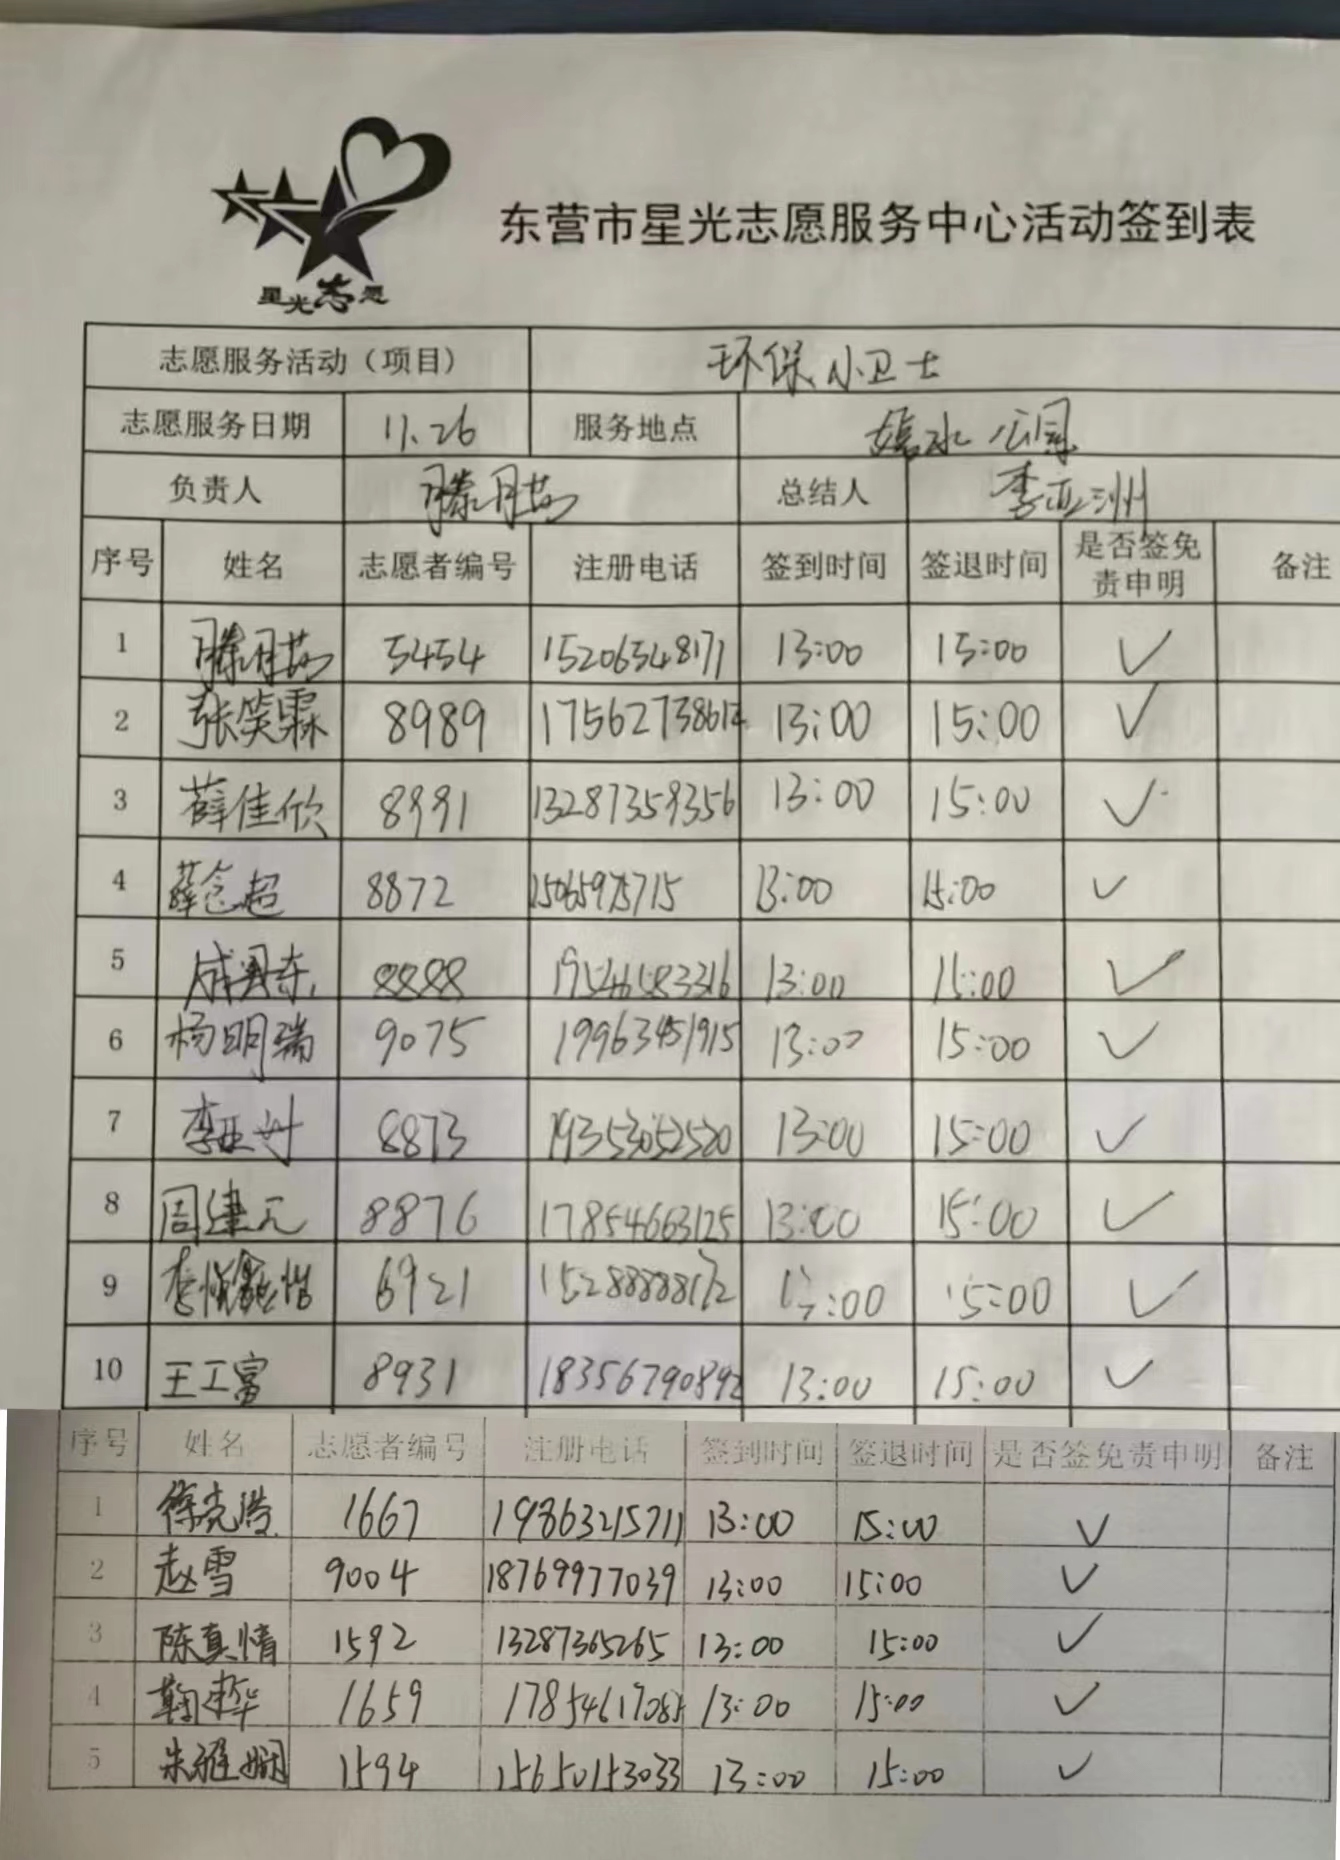 星光志愿
东营市星光志愿服务中心活动签到表
志愿服务活动（项目） 环保小卫士
志愿服务日期 11.26 服务地点 嬉水公园
负责人 滕月茹 总结人 李亚洲
序号 姓名 志愿者编号 注册电话 签到时间 签退时间 是否签免责申明 备注
1 滕月茹 5454 15206548171 13:00 15:00 ✓
2 张笑霖 8989 17562738612 13:00 15:00 ✓
3 薛佳欣 8991 13287359356 13:00 15:00 ✓
4 薛念超 8872 15065975715 13:00 15:00 ✓
5 8888 19546583316 13:00 15:00 ✓
6 杨明瑞 9075 19963451915 13:00 15:00 ✓
7 李亚洲 8873 19353052520 13:00 15:00 ✓
8 周建元 8876 17854663125 13:00 15:00 ✓
9 6921 15288888172 13:00 15:00 ✓
10 王工富 8931 18356790892 13:00 15:00 ✓
序号 姓名 志愿者编号 注册电话 签到时间 签退时间 是否签免责申明 备注
1 徐克浩 1667 19863215711 13:00 15:00 ✓
2 赵雪 9004 18769977039 13:00 15:00 ✓
3 陈真情 1592 13287365265 13:00 15:00 ✓
4 鞠建华 1659 17854617085 13:00 15:00 ✓
5 朱雅娴 1594 15650153033 13:00 15:00 ✓